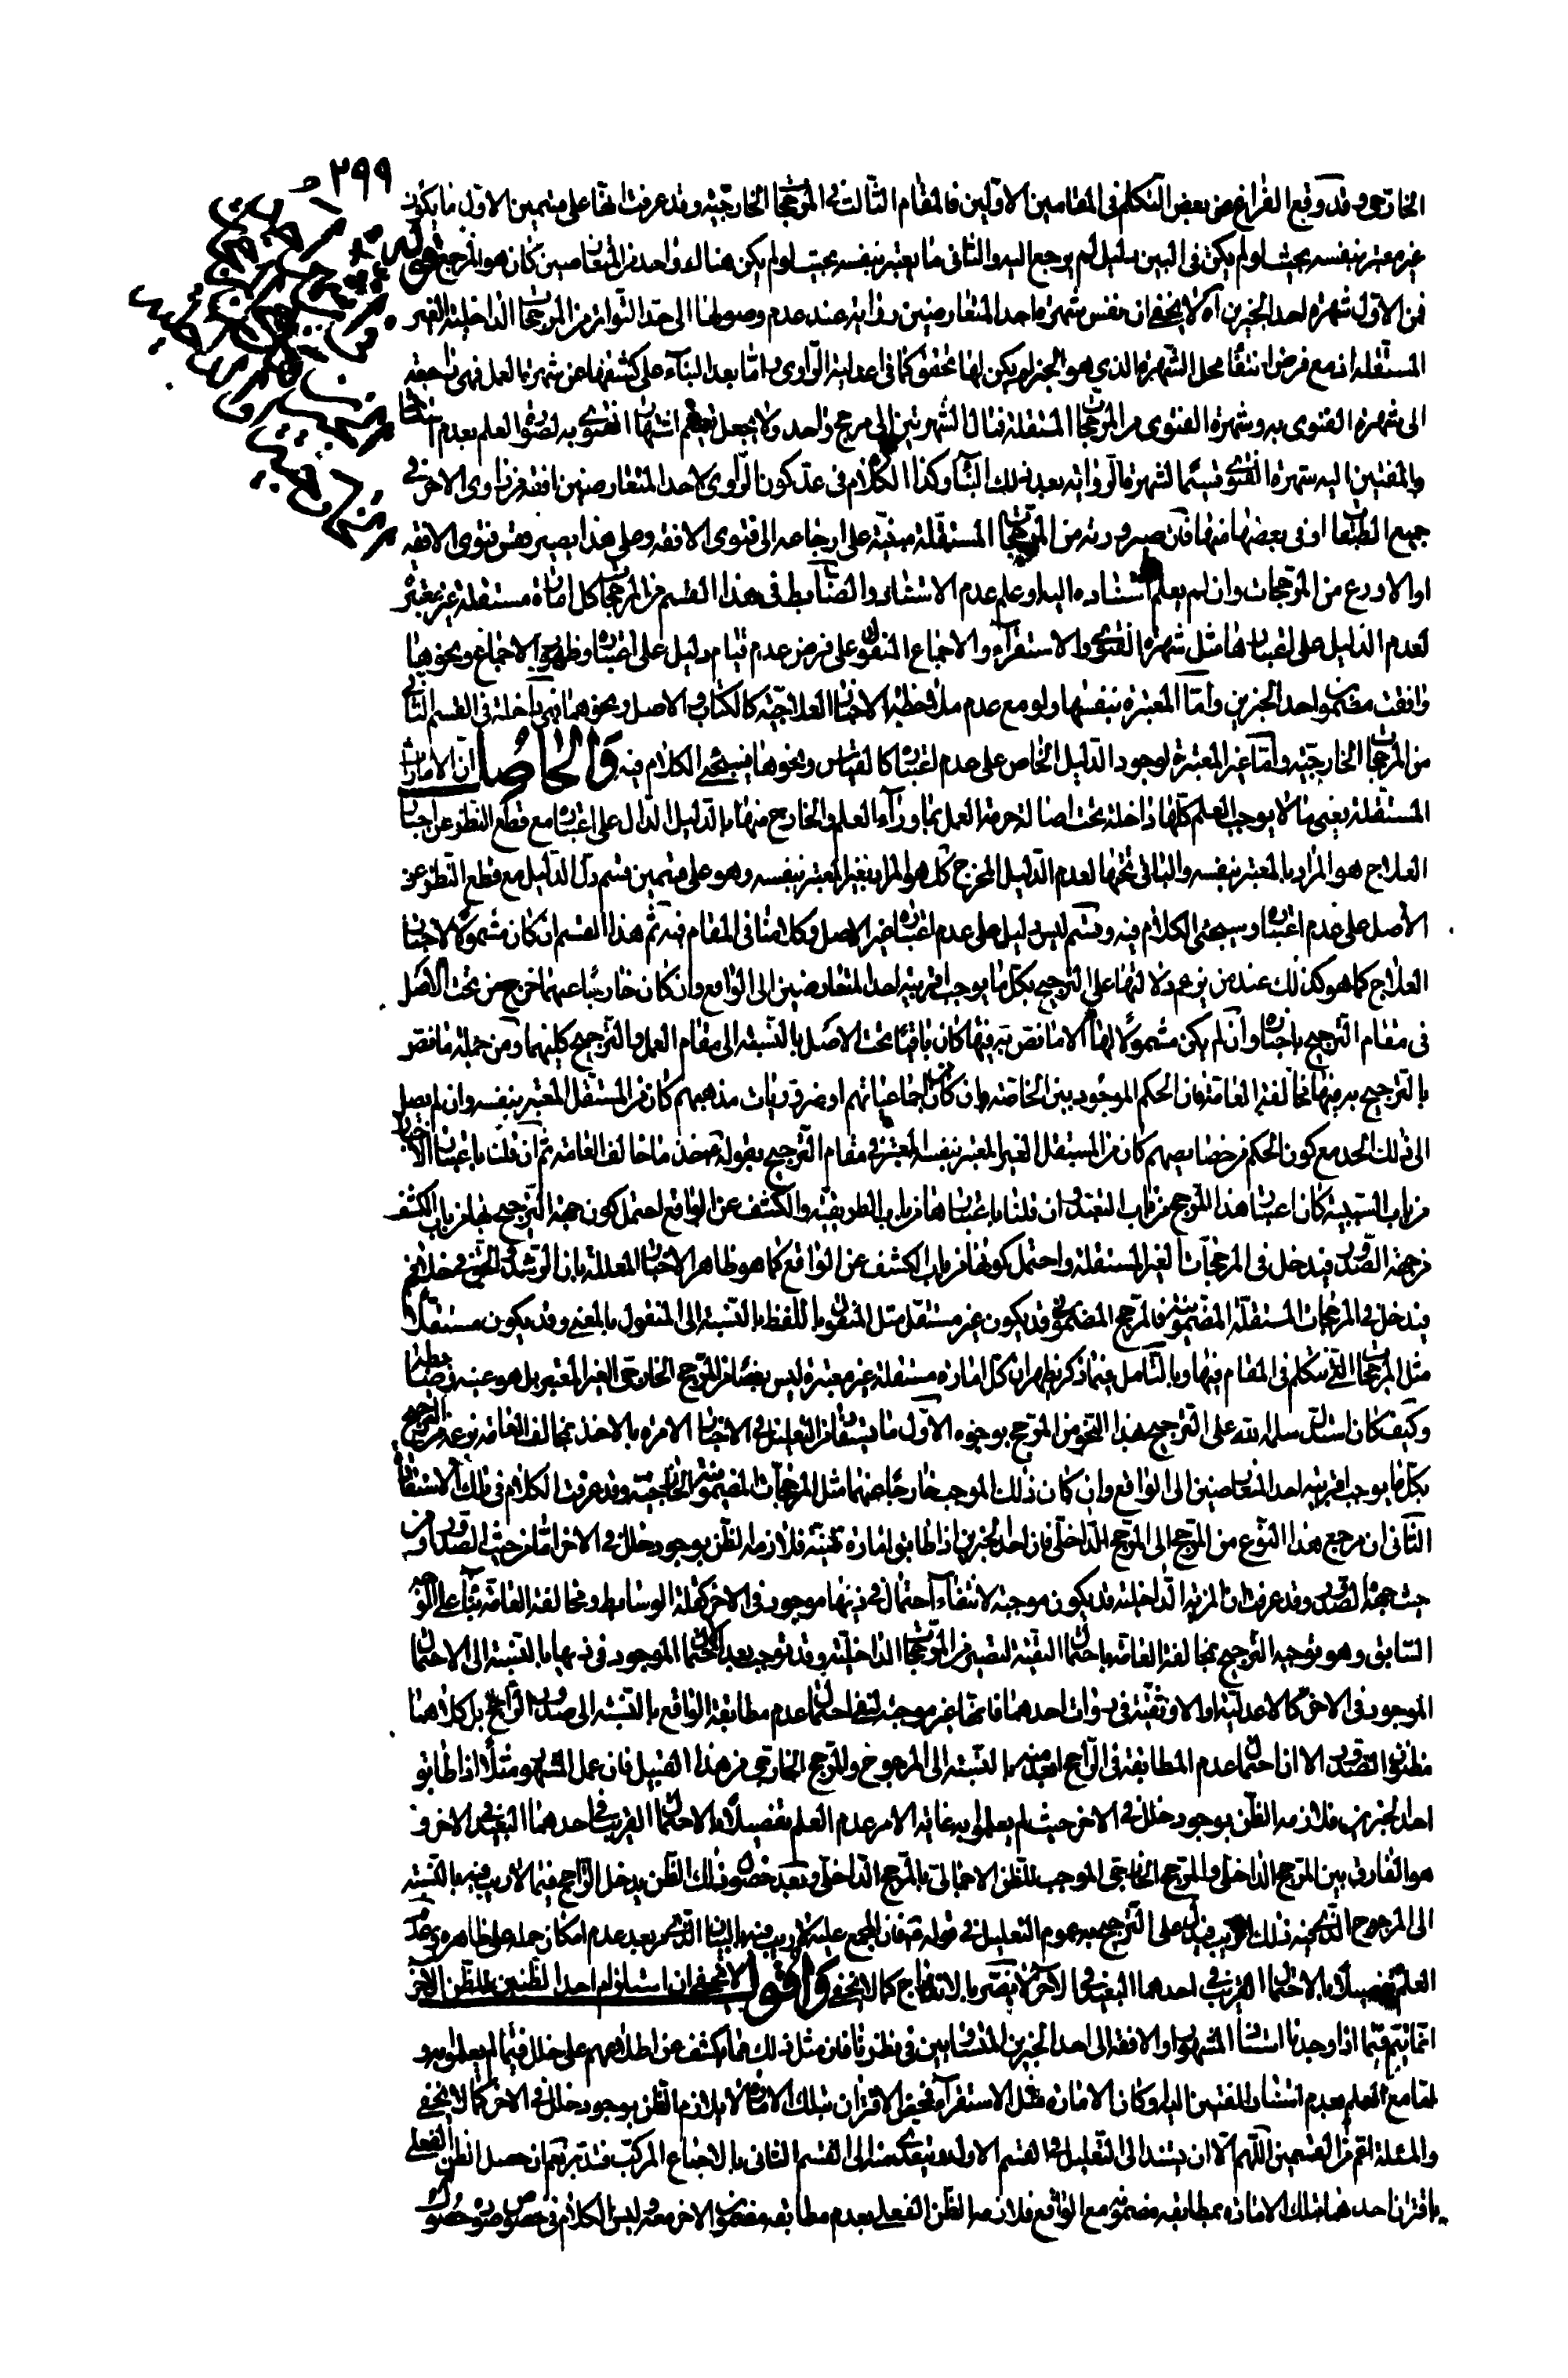 ٢٩٩
الخارجى وقد وقع الفراغ عن بعض التكلم فى المقامين الاولين فالمقام الثالث فى المرجحات الخارجية وقد عرفت انها على قسمين الاول ما يكون
غير معتبر بنفسه بحيث لو لم يكن فى البين دليل لم يرجع اليه والثانى ما يعتبر بنفسه بحيث لو لم يكن هناك واحد من المتعارضين كان هو المرجع
فمن الاول شهرة احد الخبرين اه لا يخفى ان نفس شهرة احد المتعارضين رواية عند عدم وصولها الى حد التواتر من المرجحات الداخلية الغير
المستقلة اذ مع فرض انتفاء محل الشهرة الذي هو الخبر لم يكن لها تحقق كما فى اعدلية الراوى واما بعد البناء على كشفها عن شهرة العمل فهى راجعة
الى شهرة الفتوى به وشهرة الفتوى من المرجحات المستقلة فمال الشهرتين الى مرجح واحد ولا يجعل
والمفتين اليه شهرة الفتوى قسيما لشهرة الرواية بعد ذلك البناء وكذا الكلام فى عد كون الراوى لاحد المتعارضين افقه من راوى الاخر فى
جميع الطبقات او فى بعضها منها فان صيرورته من المرجحات المستقلة مبنية على ارجاعه الى فتوى الافقه وعلى هذا يصير نفس فتوى الافقه
او الاورع من المرجحات وان لم يعلم استناده اليه او علم عدم الاستناد والضابط فى هذا القسم من المرجحات كل امارة مستقلة غير معتبرة
لعدم الدليل على اعتبارها مثل شهرة الفتوى والاستقراء والاجماع المنقول على فرض عدم قيام دليل على اعتباره وظهور الاجماع ونحوها
وافقت مضمون احد الخبرين واما المعتبرة بنفسها ولو مع عدم ملاحظة الاخبار العلاجية كالكتاب والاصل ونحوهما فهى داخلة فى القسم الثانى
من المرجحات الخارجية واما غير المعتبرة لوجود الدليل الخاص على عدم اعتباره كالقياس ونحوها فسيجئ الكلام فيه والحاصل ان الامارات
المستقلة يعنى ما لا يوجب العلم كلها داخلة تحت اصالة حرمة العمل بما وراء العلم والخارج منها بالدليل الدال على اعتباره مع قطع النظر عن اخبار
العلاج هو المراد بالمعتبر بنفسه والباقى تحتها لعدم الدليل المخرج كل هو المراد بغير المعتبر بنفسه وهو على قسمين قسم دل الدليل مع قطع النظر عن
الاصل على عدم اعتباره وسيجئ الكلام فيه وقسم ليس دليل على عدم اعتباره غير الاصل وكلامنا فى المقام فيه ثم هذا القسم ان كان مشمولا لاخبار
العلاج كما هو كذلك عند من يزعم دلالتها على الترجيح بكل ما يوجب اقربية احد المتعارضين الى الواقع وان كان خارجا عنهما خرج من تحت الاصل
فى مقام الترجيح باخباره وان لم يكن مشمولا لها الا ما نص به فيها كان باقيا تحت الاصل بالنسبة الى مقام العمل والترجيح كليهما ومن جملة ما نص
بالترجيح به فيها مخالفة العامة فان الحكم الموجود بين الخاصة وان كان من اجماعياتهم او ضروريات مذهبهم كان من المستقل المعتبر بنفسه وان لم يصل
الى ذلك الحد مع كون الحكم من خصائصهم كان من المستقل الغير المعتبر بنفسه المعتبر فى مقام الترجيح بقوله خذ ما خالف العامة ثم ان قلنا باعتبار الاخبار
من باب السببية كان اعتبار هذا المرجح من باب التعبد وان قلنا باعتبارها من باب الطريقية والكشف عن الواقع احتمل كون جهة الترجيح بها من باب الكشف
من جهة الصدور فيدخل فى المرجحات الغير المستقلة واحتمل كونها من باب الكشف عن الواقع كما هو ظاهر الاخبار المعللة بان الرشد والحق فى خلافهم
فيدخل فى المرجحات المستقلة المضمونية فالمرجح المضمونى قد يكون غير مستقل مثل المنقول باللفظ بالنسبة الى المنقول بالمعنى وقد يكون مستقلا
مثل المرجحات التى نتكلم فى المقام فيها وبالتامل فيما ذكر يظهر ان كل امارة مستقلة غير معتبرة ليس بعضا من المرجح الخارجى الغير المعتبر بل هو عينه
وكيف كان استدل سلمه الله على الترجيح بهذا النحو من المرجح بوجوه الاول ما يستفاد من التعليل فى الاخبار الامرة بالاخذ بمخالف العامة نوعه من الترجيح
بكل ما يوجب اقربية احد المتعارضين الى الواقع وان كان ذلك الموجب خارجا عنهما مثل المرجحات المضمونية الخارجية وقد عرفت الكلام فى تلك الاستفادة
الثانى ان مرجع هذا النوع من المرجح الى المرجح الداخلى فان احد الخبرين اذا طابق امارة ظنية فلازمه الظن بوجود خلل فى الاخر اما من حيث الصدور او من
حيث جهة الصدور وقد عرفت ان المزية الداخلية قد يكون موجبة لانتفاء احتمال فى ذيها موجود فى الاخر كقلة الوسائط ومخالفة العامة بناء على الوجه
السابق وهو توجيه الترجيح بمخالفة العامة باحتمال التقية لتصير من المرجحات الداخلية وقد توجب بعد الاحتمال الموجود فى ذيها بالنسبة الى الاحتمال
الموجود فى الاخر كالاعدلية او الاوثقية فى رواة احدهما فانها غير موجبة لنفى احتمال عدم مطابقة الواقع بالنسبة الى صدور الراجح بل كلاهما
مظنون الصدور الا ان احتمال عدم المطابقة فى الراجح ابعد منه بالنسبة الى المرجوح والمرجح الخارجى من هذا القبيل فان عمل المشهور مثلا اذا طابق
احد الخبرين فلازمه الظن بوجود خلل فى الاخر حيث لم يعملوا به غاية الامر عدم العلم تفصيلا بالاحتمال القريب فى احدهما البعيد فى الاخر و
هو الفارق بين المرجح الداخلى والمرجح الخارجى الموجب للظن الاجمالى بالمرجح الداخلى وبعد حصول ذلك الظن يدخل الراجح فيما لا ريب فيه بالنسبة
الى المرجوح الذى فيه ذلك الريب فيدل على الترجيح به عموم التعليل فى قوله فان المجمع عليه لا ريب فيه بالبيان الذى مر بعد عدم امكان حمله على ظاهره وعدم
العلم تفصيلا بالاحتمال القريب فى احدهما البعيد فى الاخر لا يضر بالاندراج كما لا يخفى واقول لا يخفى ان استلزام احد الظنين للظن الاخر
انما يتم فيما اذا وجدنا استناد المشهور او الافقه الى احد الخبرين المتساويين فى نظرنا فان مثل ذلك مما يكشف عن اطلاعهم على خلل فيما لم يعملوا به و
اما مع العلم بعدم استناد المفتين اليه او كان الامارة مثل الاستقراء فمحض الاقتران بتلك الامارة لا يلازم الظن بوجود خلل فى الاخر كما لا يخفى
والمسئلة اعم من القسمين اللهم الا ان يستند الى التعليل فى القسم الاول ويتعدى منه الى القسم الثانى بالاجماع المركب فتدبر نعم ان حصل الظن الفعلى
باقتران احدهما بتلك الامارة بمطابقة مضمونه مع الواقع فلازمه الظن الفعلى بعدم مطابقة مضمون الاخر معه وليس الكلام فى خصوص صورة حصول